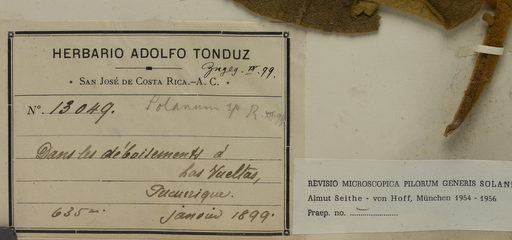 HERBARIO ADOLFO TONDUZ
SAN JOSÉ DE COSTA RICA.–A. C.
99.
Nº. 13049. Solanum sp
Dans les déboisements à
Las Vueltas,
Tucurrique.
635m. janvier 1899.
REVISIO MICROSCOPICA PILORUM GENERIS SOLAN
Almut Seithe - von Hoff, München 1954 - 1956
Praep. no.